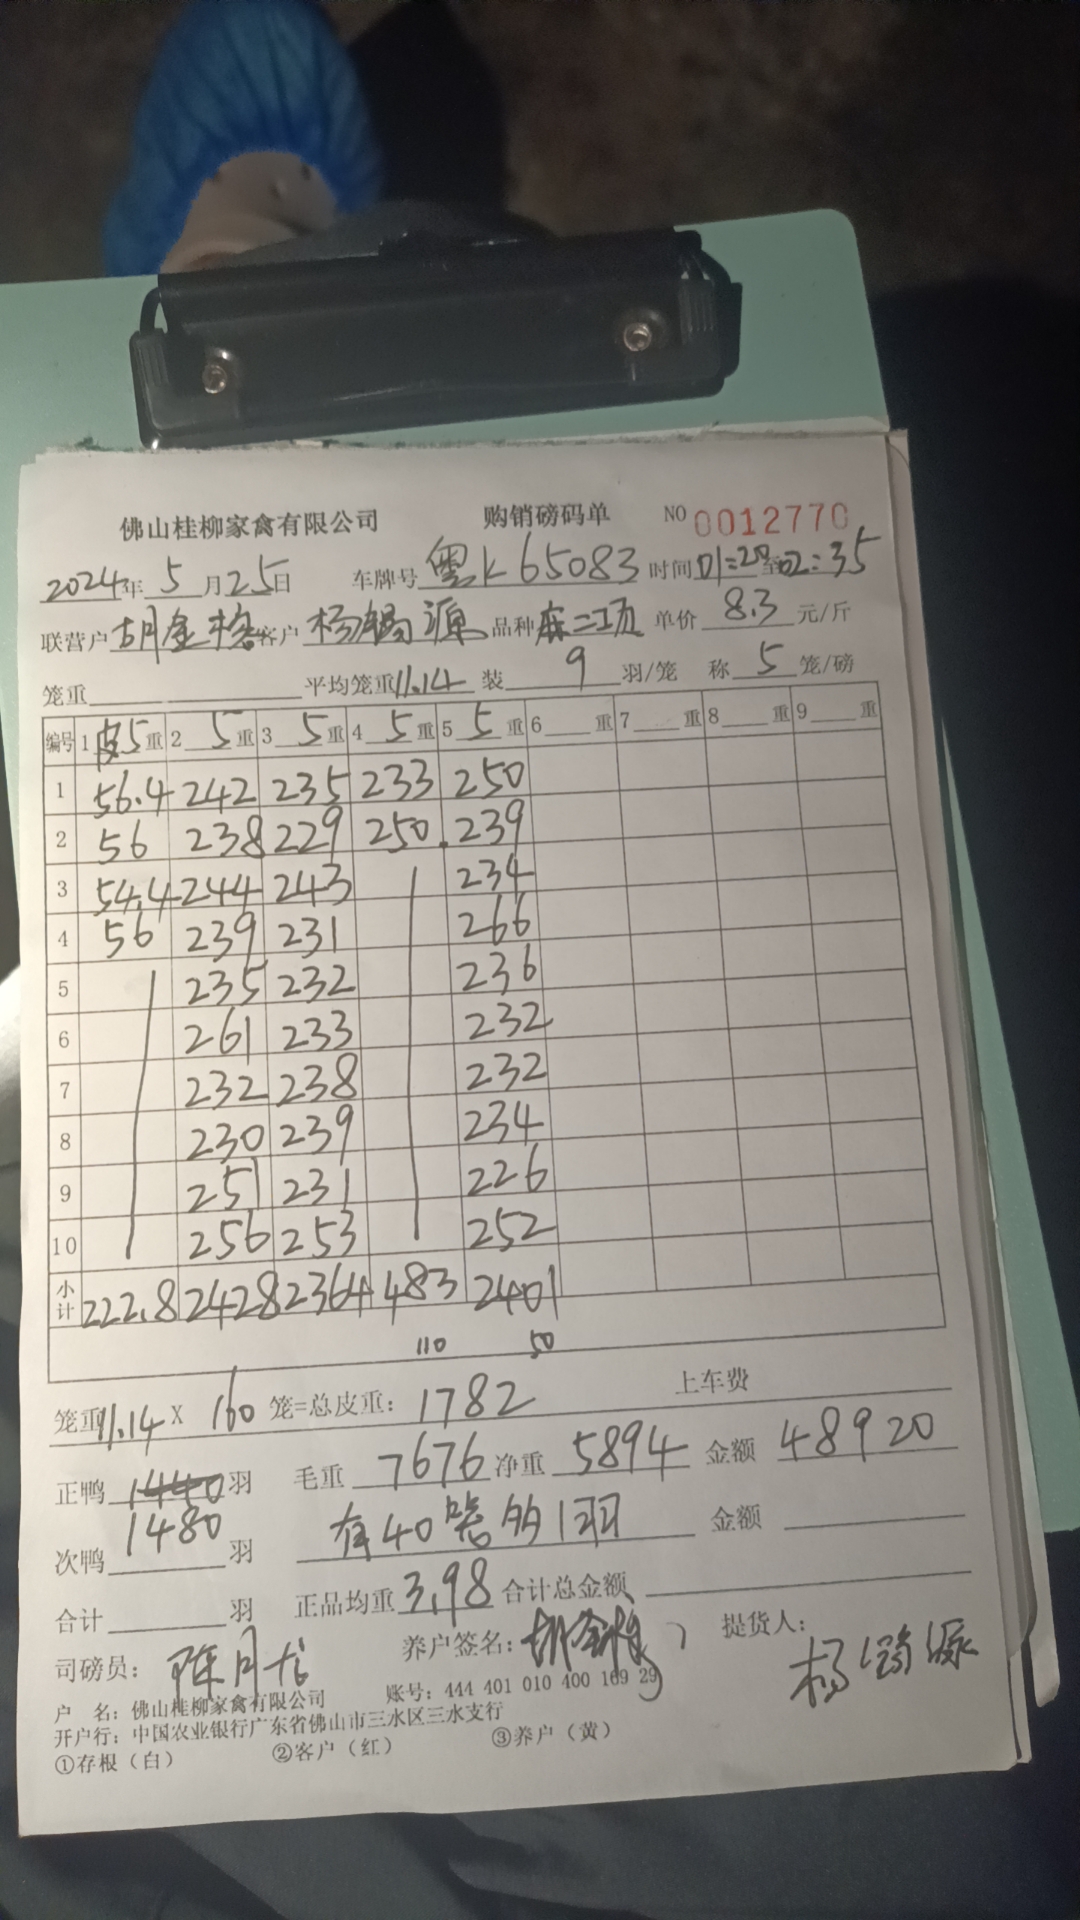 佛山桂柳家禽有限公司 购销磅码单 NO 0012770
2024年 5 月 25 日 车牌号 粤K65083 时间 01:20 至 02:35
联营户 胡金梅 客户 杨锡源 品种 麻二项 单价 8.3 元/斤
笼重 平均笼重 11.14 装 9 羽/笼 称 5 笼/磅
编号 1 皮5 重 2 5 重 3 5 重 4 5 重 5 5 重 6 重 7 重 8 重 9 重
1 56.4 242 235 233 250
2 56 238 229 250. 239
3 54.4 244 243 234
4 56 239 231 266
5 235 232 236
6 261 233 232
7 232 238 232
8 230 239 234
9 251 231 226
10 256 253 252
小计 222.8 2428 2364 483 2401
110 50
笼重 11.14 X 160 笼=总皮重: 1782 上车费
正鸭 1440 羽 毛重 7676 净重 5894 金额 48920
1480
次鸭 羽 有40笼的1羽 金额
合计 羽 正品均重 3.98 合计总金额
司磅员: 陈月 养户签名: 胡金梅 提货人: 杨锡源
户 名: 佛山桂柳家禽有限公司 账号: 444 401 010 400 169 29
开户行: 中国农业银行广东省佛山市三水区三水支行
①存根（白） ②客户（红） ③养户（黄）